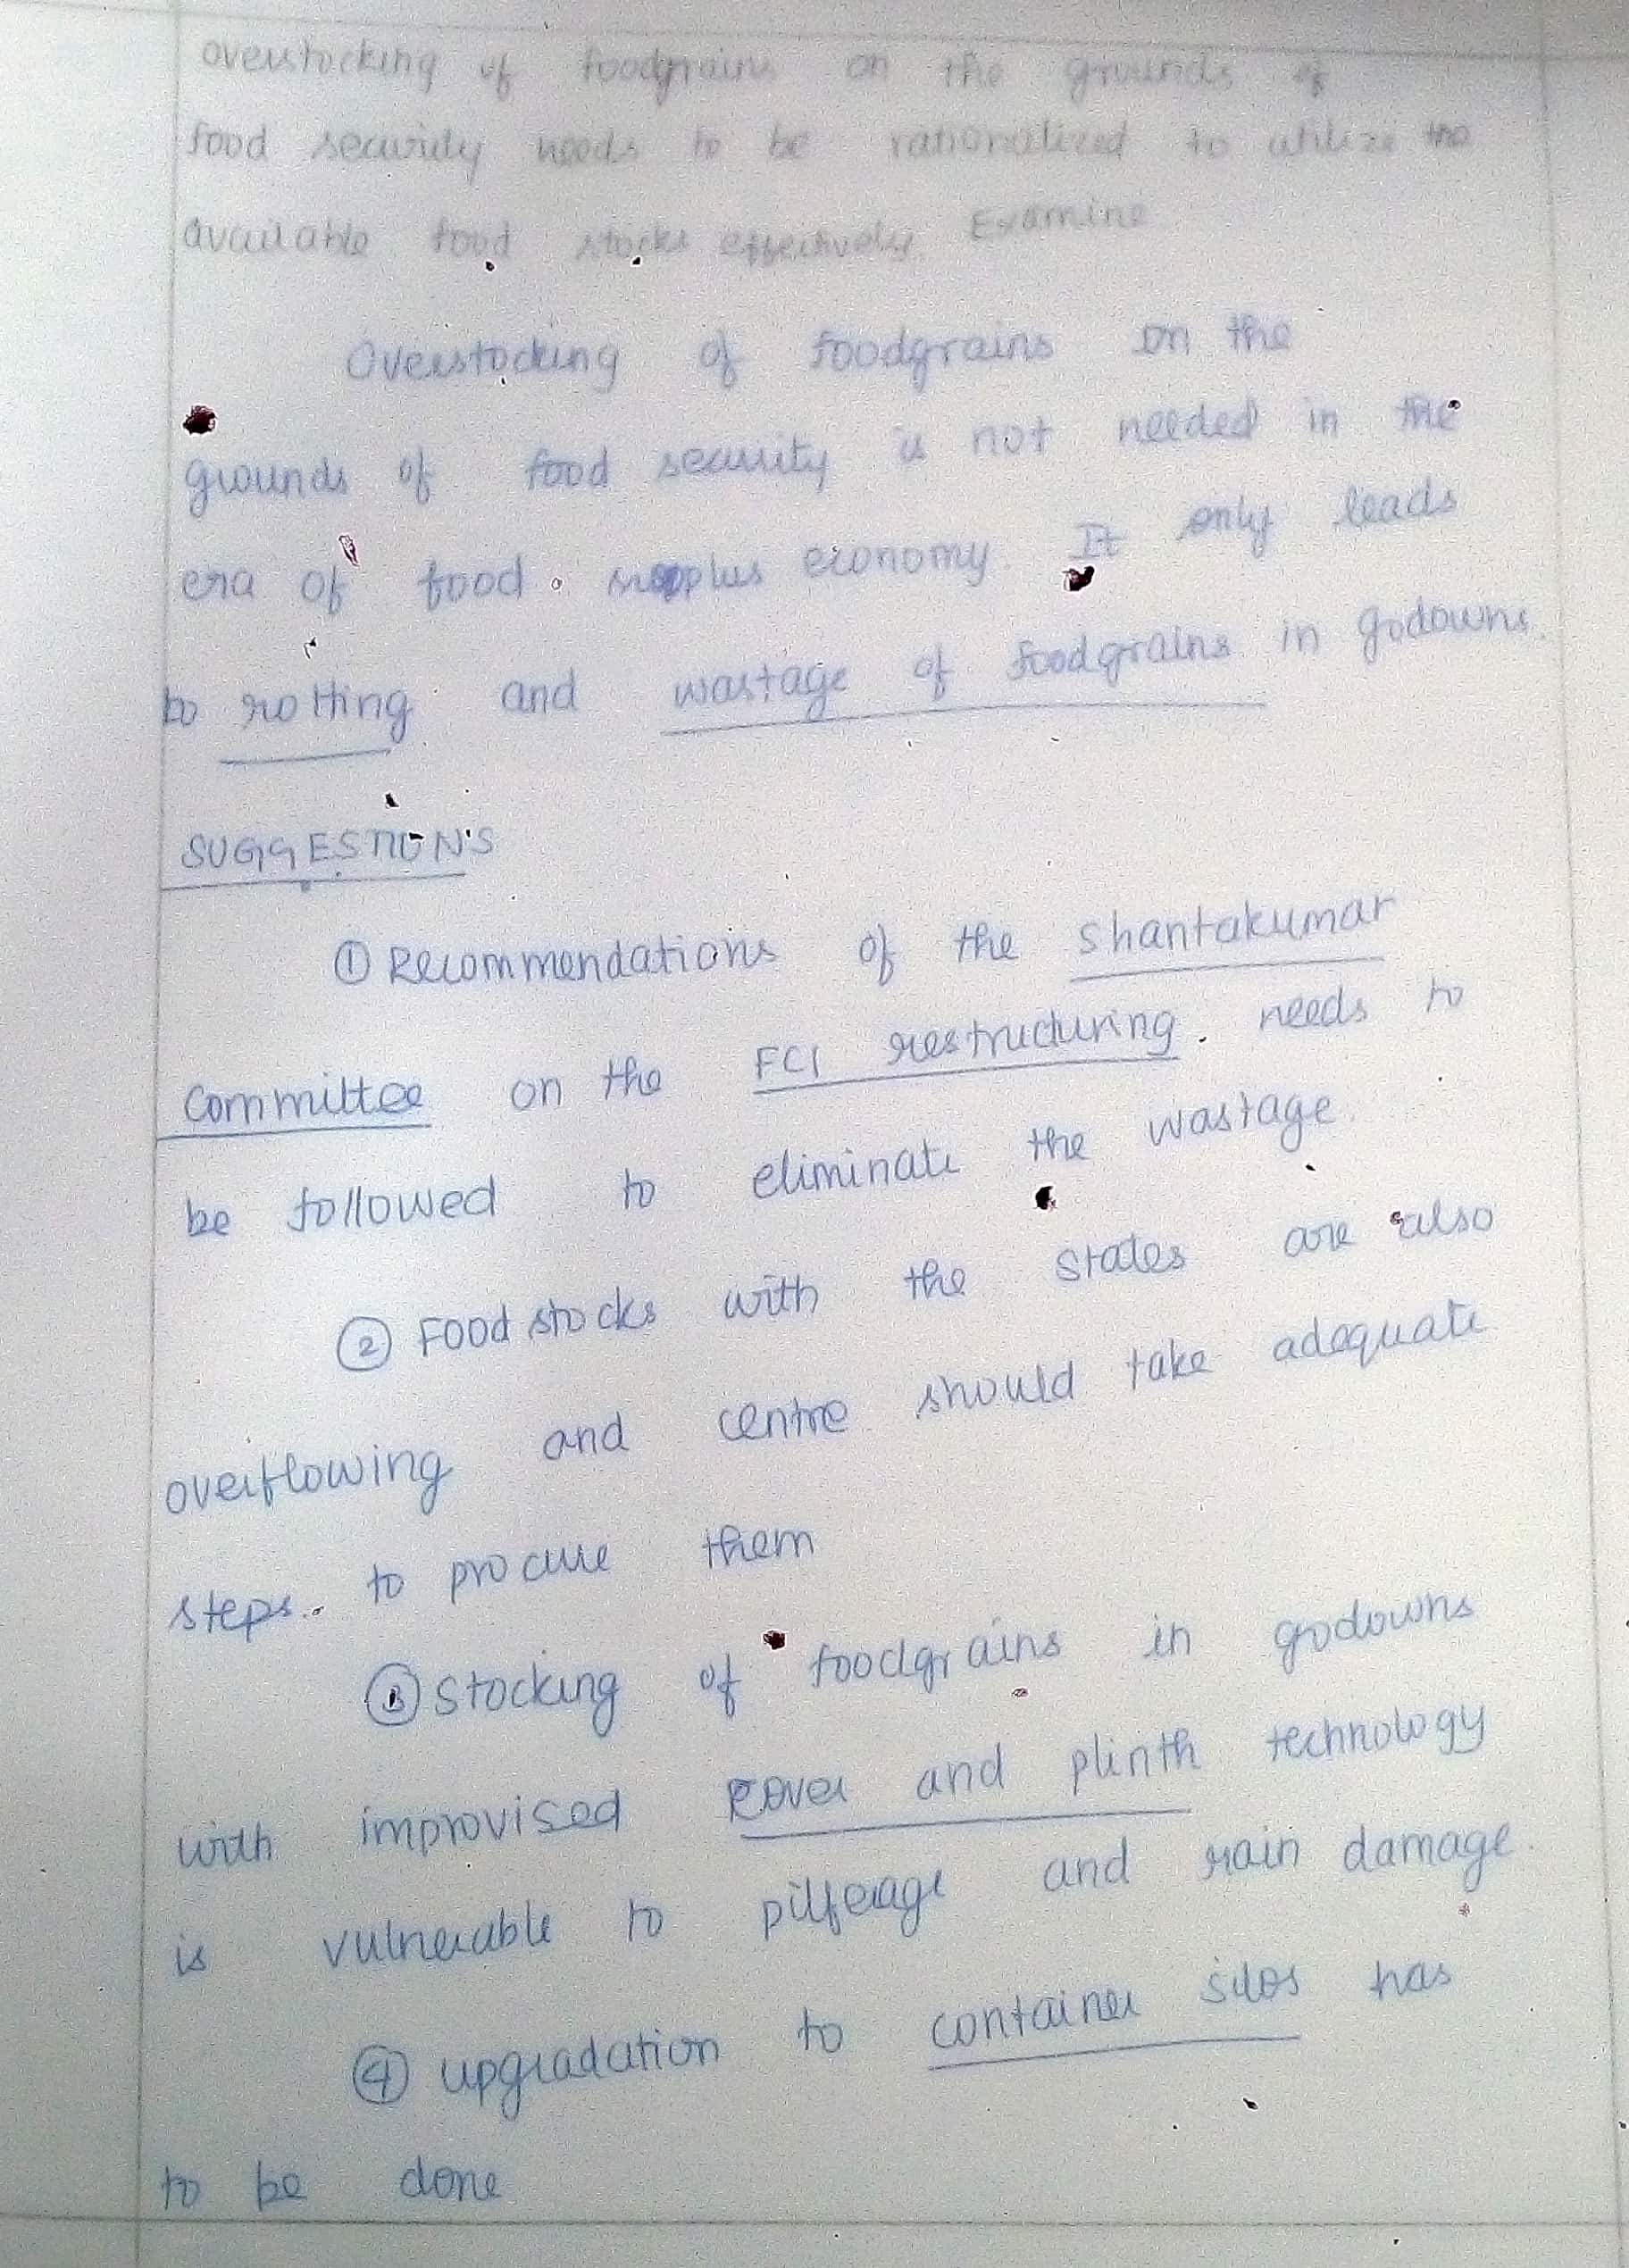 overstocking of foodgrains on the grounds of
food security needs to be rationalized to utilize the
available food stocks effectively Examine
Overstocking of foodgrains on the
grounds of food security is not needed in the
era of food surplus economy. It only leads
to rotting and wastage of foodgrains in godowns.
SUGGESTIONS
① Recommendations of the Shantakumar
Committee on the FCI restructuring needs to
be followed to eliminate the wastage.
② Food stocks with the states are also
overflowing and centre should take adequate
steps to procure them
③ Stocking of foodgrains in godowns
with improvised cover and plinth technology
is vulnerable to pilferage and rain damage.
④ upgradation to container silos has
to be done